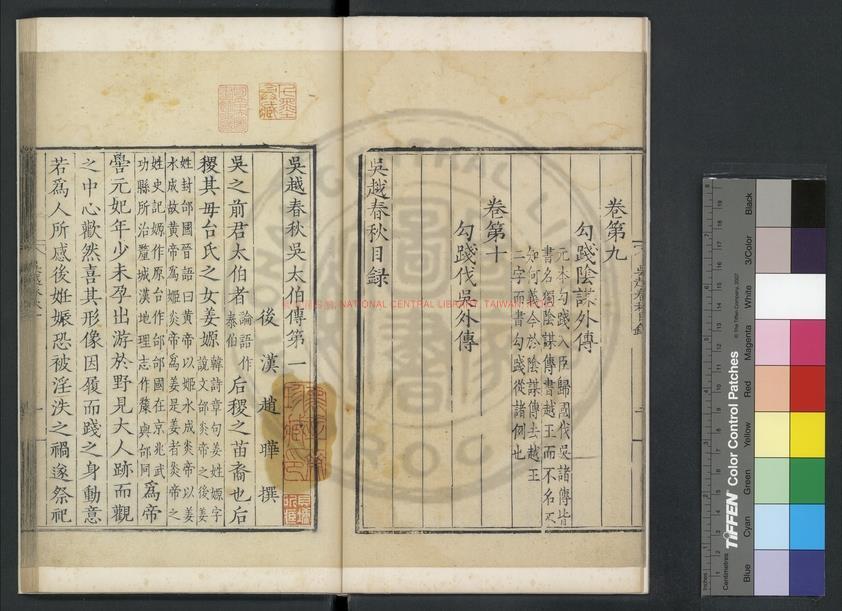 卷第九
勾踐陰謀外傳
元本勾踐入臣歸國伐吳諸傳皆
書名獨陰謀傳書越王而不名不
知何義今於陰謀傳去越王
二字而書勾踐從諸例也
卷第十
勾踐伐吳外傳
吳越春秋目録
吳越春秋吳太伯傳第一
後漢趙曄撰
吳之前君太伯者
論語作
泰伯
后稷之苗裔也后
稷其母台氏之女姜嫄
韓詩章句姜姓嫄字
說文邰炎帝之後姜
姓封邰國晉語曰黃帝以姬水成炎帝以姜
水成故黃帝爲姬炎帝爲姜是姜者炎帝之
姓史記嫄作原台作邰邰國在京兆武
功縣所治釐城漢地理志作斄與邰同
爲帝
嚳元妃年少未孕出游於野見大人跡而觀
之中心歡然喜其形像因履而踐之身動意
若爲人所感後姙娠恐被淫泆之禍遂祭祀
NATIONAL CENTRAL LIBRARY, TAIWAN
TIFFEN Color Control Patches
© The Tiffen Company, 2007
Inches
Centimetres
Blue
Cyan
Green
Yellow
Red
Magenta
White
3/Color
Black